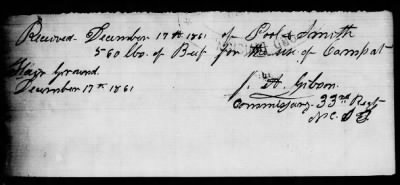 Received December 17th 1861 of Pool & Smith
560 lbs. of Beef for the use of Camp at
Fair Ground.
December 17th 1861
J. A. Gibson
Commissary 33rd Regt
N. C. S T